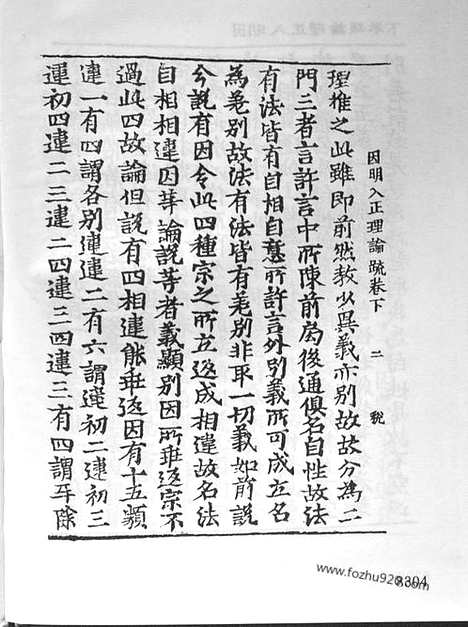 因明入正理論疏卷下 二 稅
理推之此雖即前然教少異義亦別故故分為二
門三者言許言中所陳前局後通俱名自性故法
有法皆有自相自意所許言外別義所可成立名
為差別故法有法皆有差別非取一切義如前說
今說有因令此四種宗之所立返成相違故名法
自相相違因等論說等者義顯別因所乖返宗不
過此四故論但說有四相違能乖返因有十五類
違一有四謂各別違違二有六謂違初二違初三
違初四違二三違二四違三四違三有四謂互除
www.fozhu920.com
8304